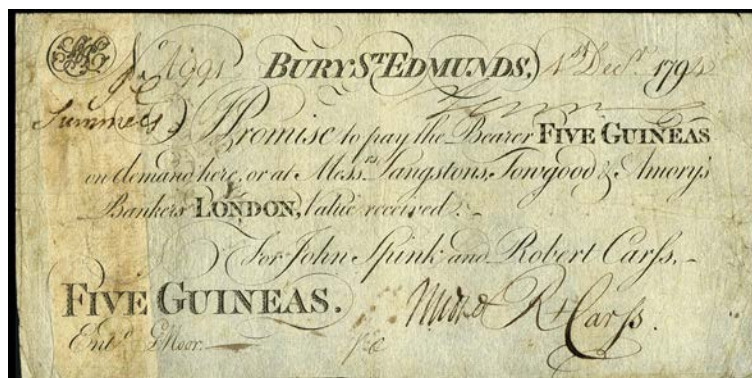 No. 1991 BURY ST. EDMUNDS, 1st Decr. 179
Summers I Promise to pay the Bearer FIVE GUINEAS
on demand here, or at Messrs. Langstons, Towgood & Amory's
Bankers LONDON, Value received.
For John Spink and Robert Carss.
FIVE GUINEAS. Rt Carss.
Entd. G Moor.